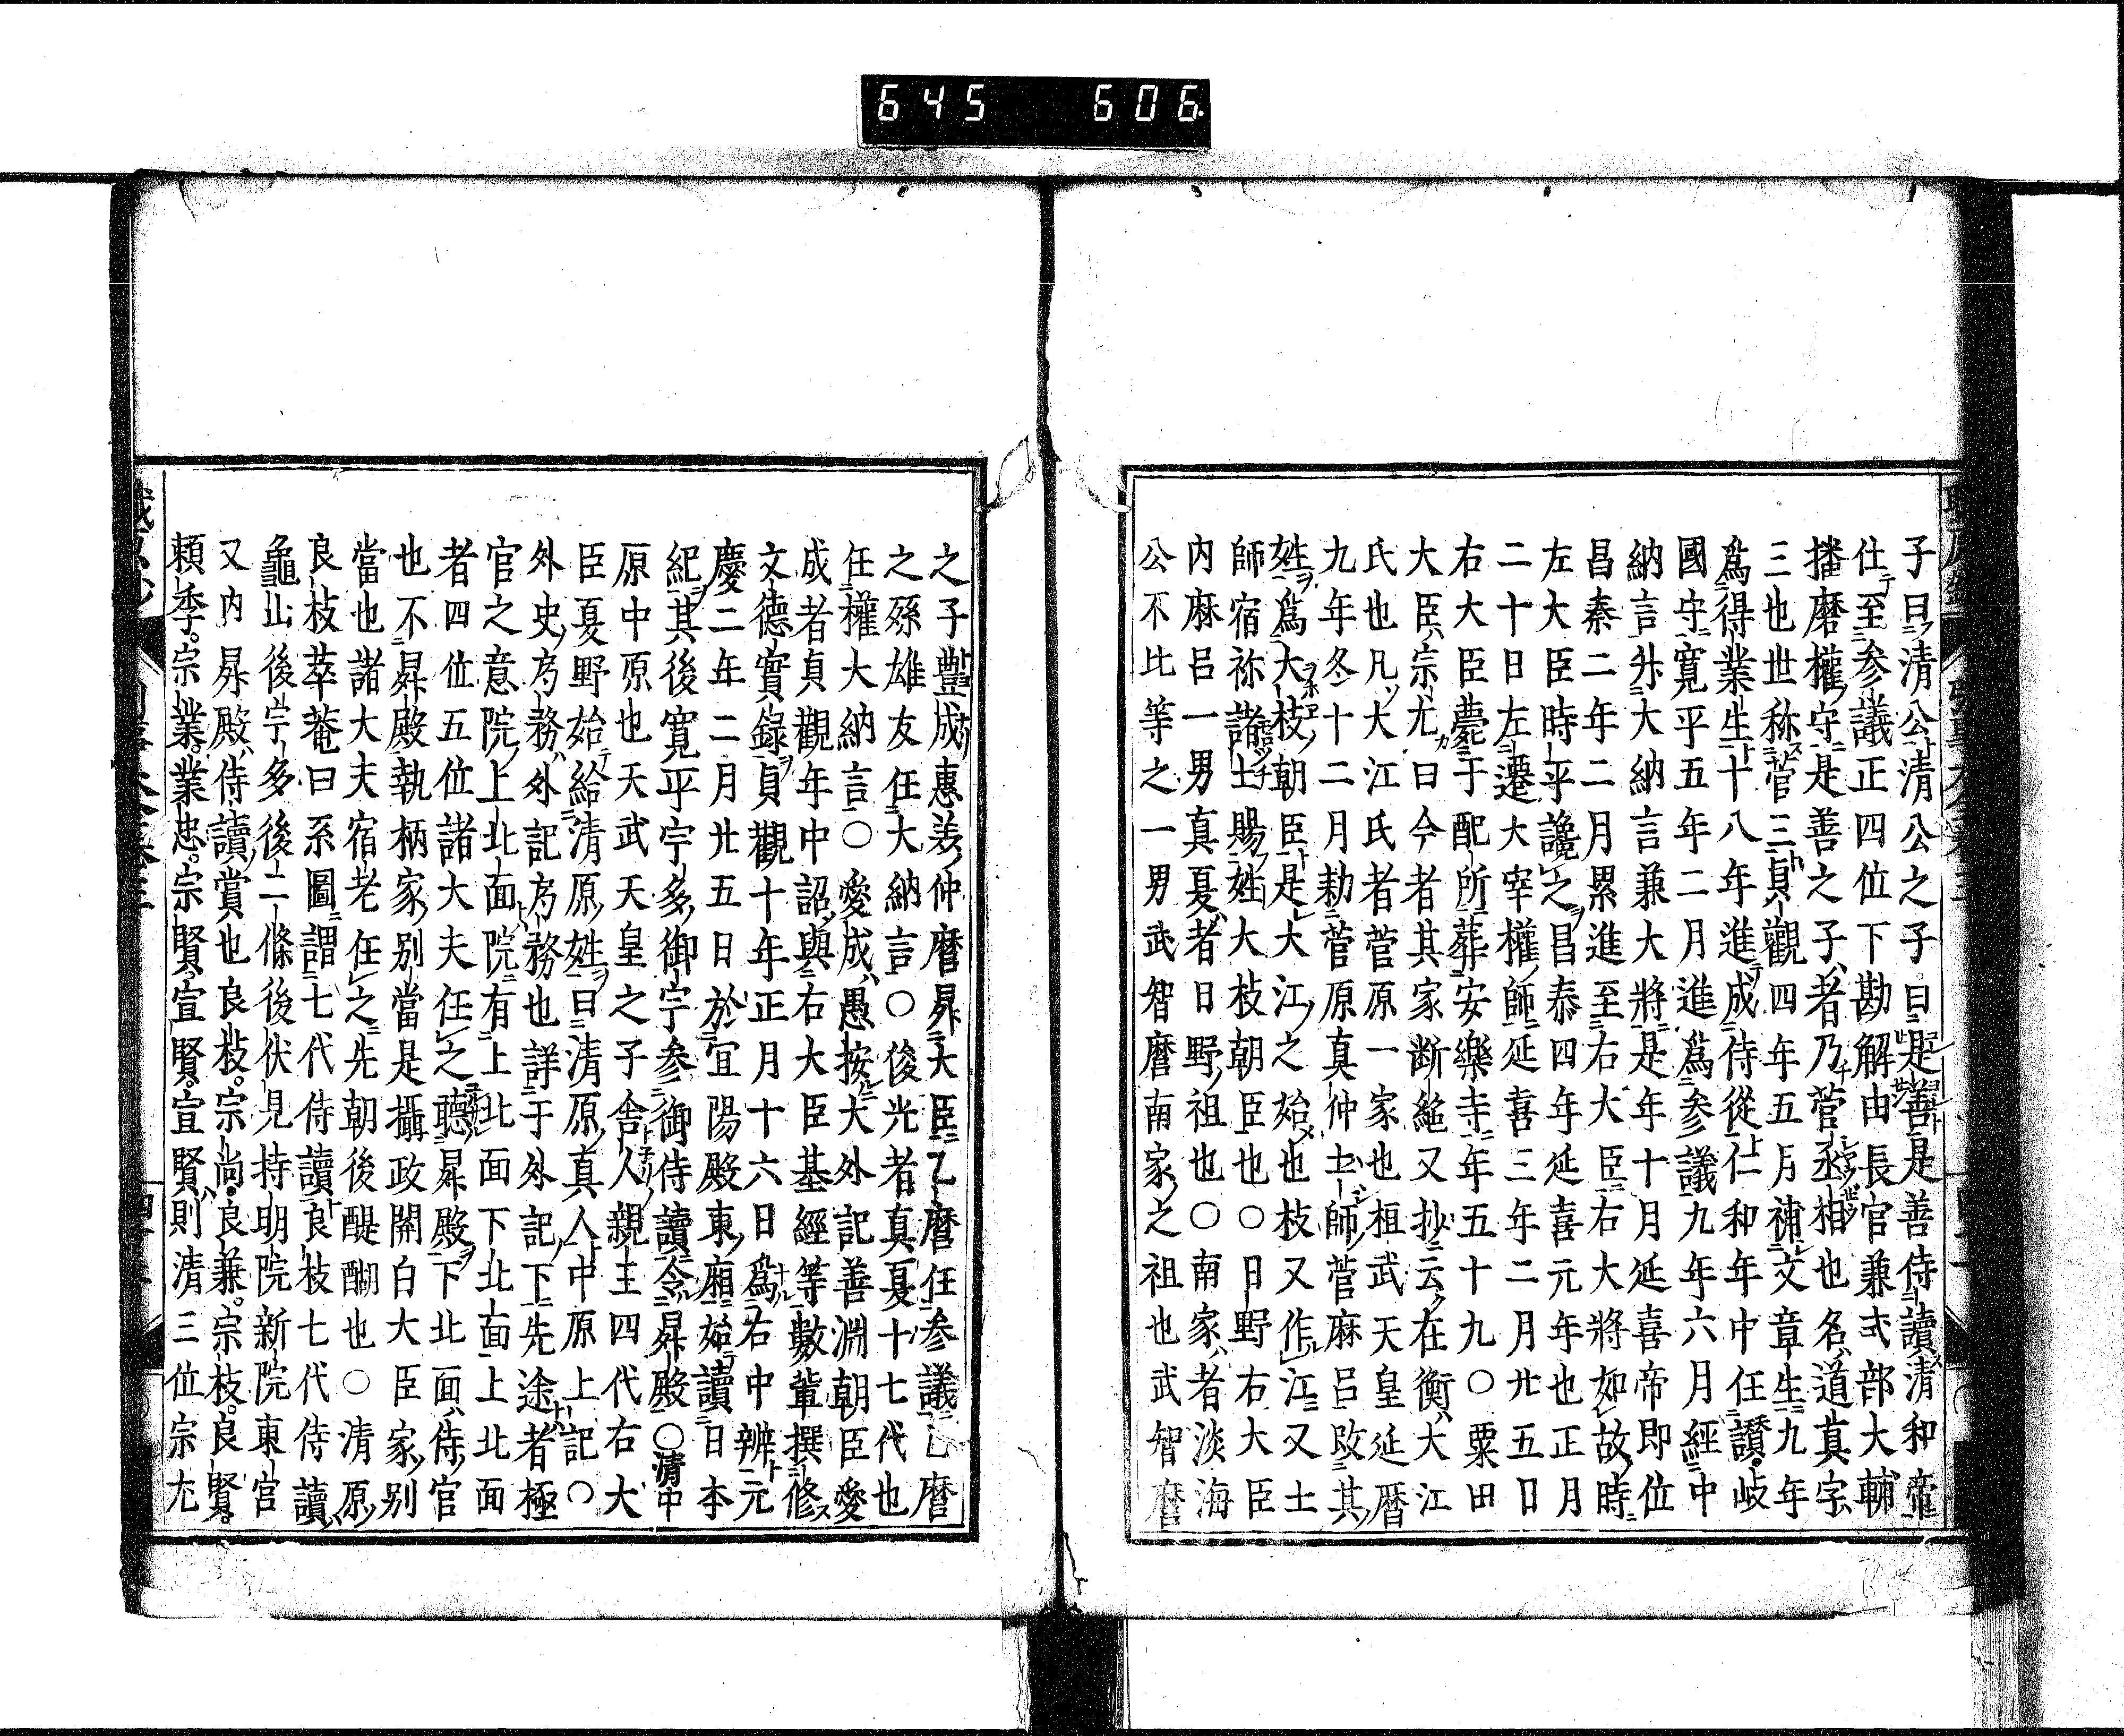 645 606
子曰清公清公之子曰是善是善侍讀清和帝
仕至参議正四位下勘解由長官兼式部大輔
播磨權守是善之子者乃菅丞相也名道真字
三也世称菅三貞觀四年五月補文章生九年
爲得業生十八年進成侍從仁和年中任讃岐
國守寛平五年二月進爲参議九年六月經中
納言外大納言兼大將是年十月延喜帝即位
昌泰二年二月累進至右大臣右大將如故時
左大臣時平讒之昌泰四年延喜元年也正月
二十日左遷大宰權師延喜三年二月廿五日
右大臣薨于配所葬安樂寺年五十九〇粟田
大臣宗尤曰今者其家断絶又抄云在衡大江
氏也凡大江氏者菅原一家也桓武天皇延暦
九年冬十二月勅菅原真仲土師菅麻呂改其
姓爲大枝朝臣是大江之始也枝又作江又土
師宿祢諸士賜姓大枝朝臣也〇日野右大臣
内麻呂一男真夏者日野祖也〇南家者淡海
公不比等之一男武智麿南家之祖也武智麿
之子豐成惠美仲麿昇大臣乙麿任参議乙麿
之孫雄友任大納言〇俊光者真夏十七代也
任權大納言〇愛成愚按大外記善淵朝臣愛
成者貞觀年中詔與右大臣基經等數輩撰修
文德實録貞觀十年正月十六日爲右中辨元
慶二年二月廿五日於宜陽殿東廂始讀日本
紀其後寛平宇多御宇参御侍讀令昇殿〇清中
原中原也天武天皇之子舎人親王四代右大
臣夏野始給清原姓曰清原真人中原上記〇
外史局務外記局務也詳于外記下先途者極
官之意院上北面院有上北面下北面上北面
者四位五位諸大夫任之聴昇殿下北面侍官
也不昇殿執柄家別當是攝政關白大臣家別
當也諸大夫宿老任之先朝後醍醐也〇清原
良枝萃菴曰系圖謂七代侍讀良枝七代侍讀
龜山後宇多後二條後伏見持明院新院東宮
又内昇殿侍讀賞也良枝宗尚良兼宗枝良賢
頼季宗業業忠宗賢宣賢宣賢則清三位宗尤